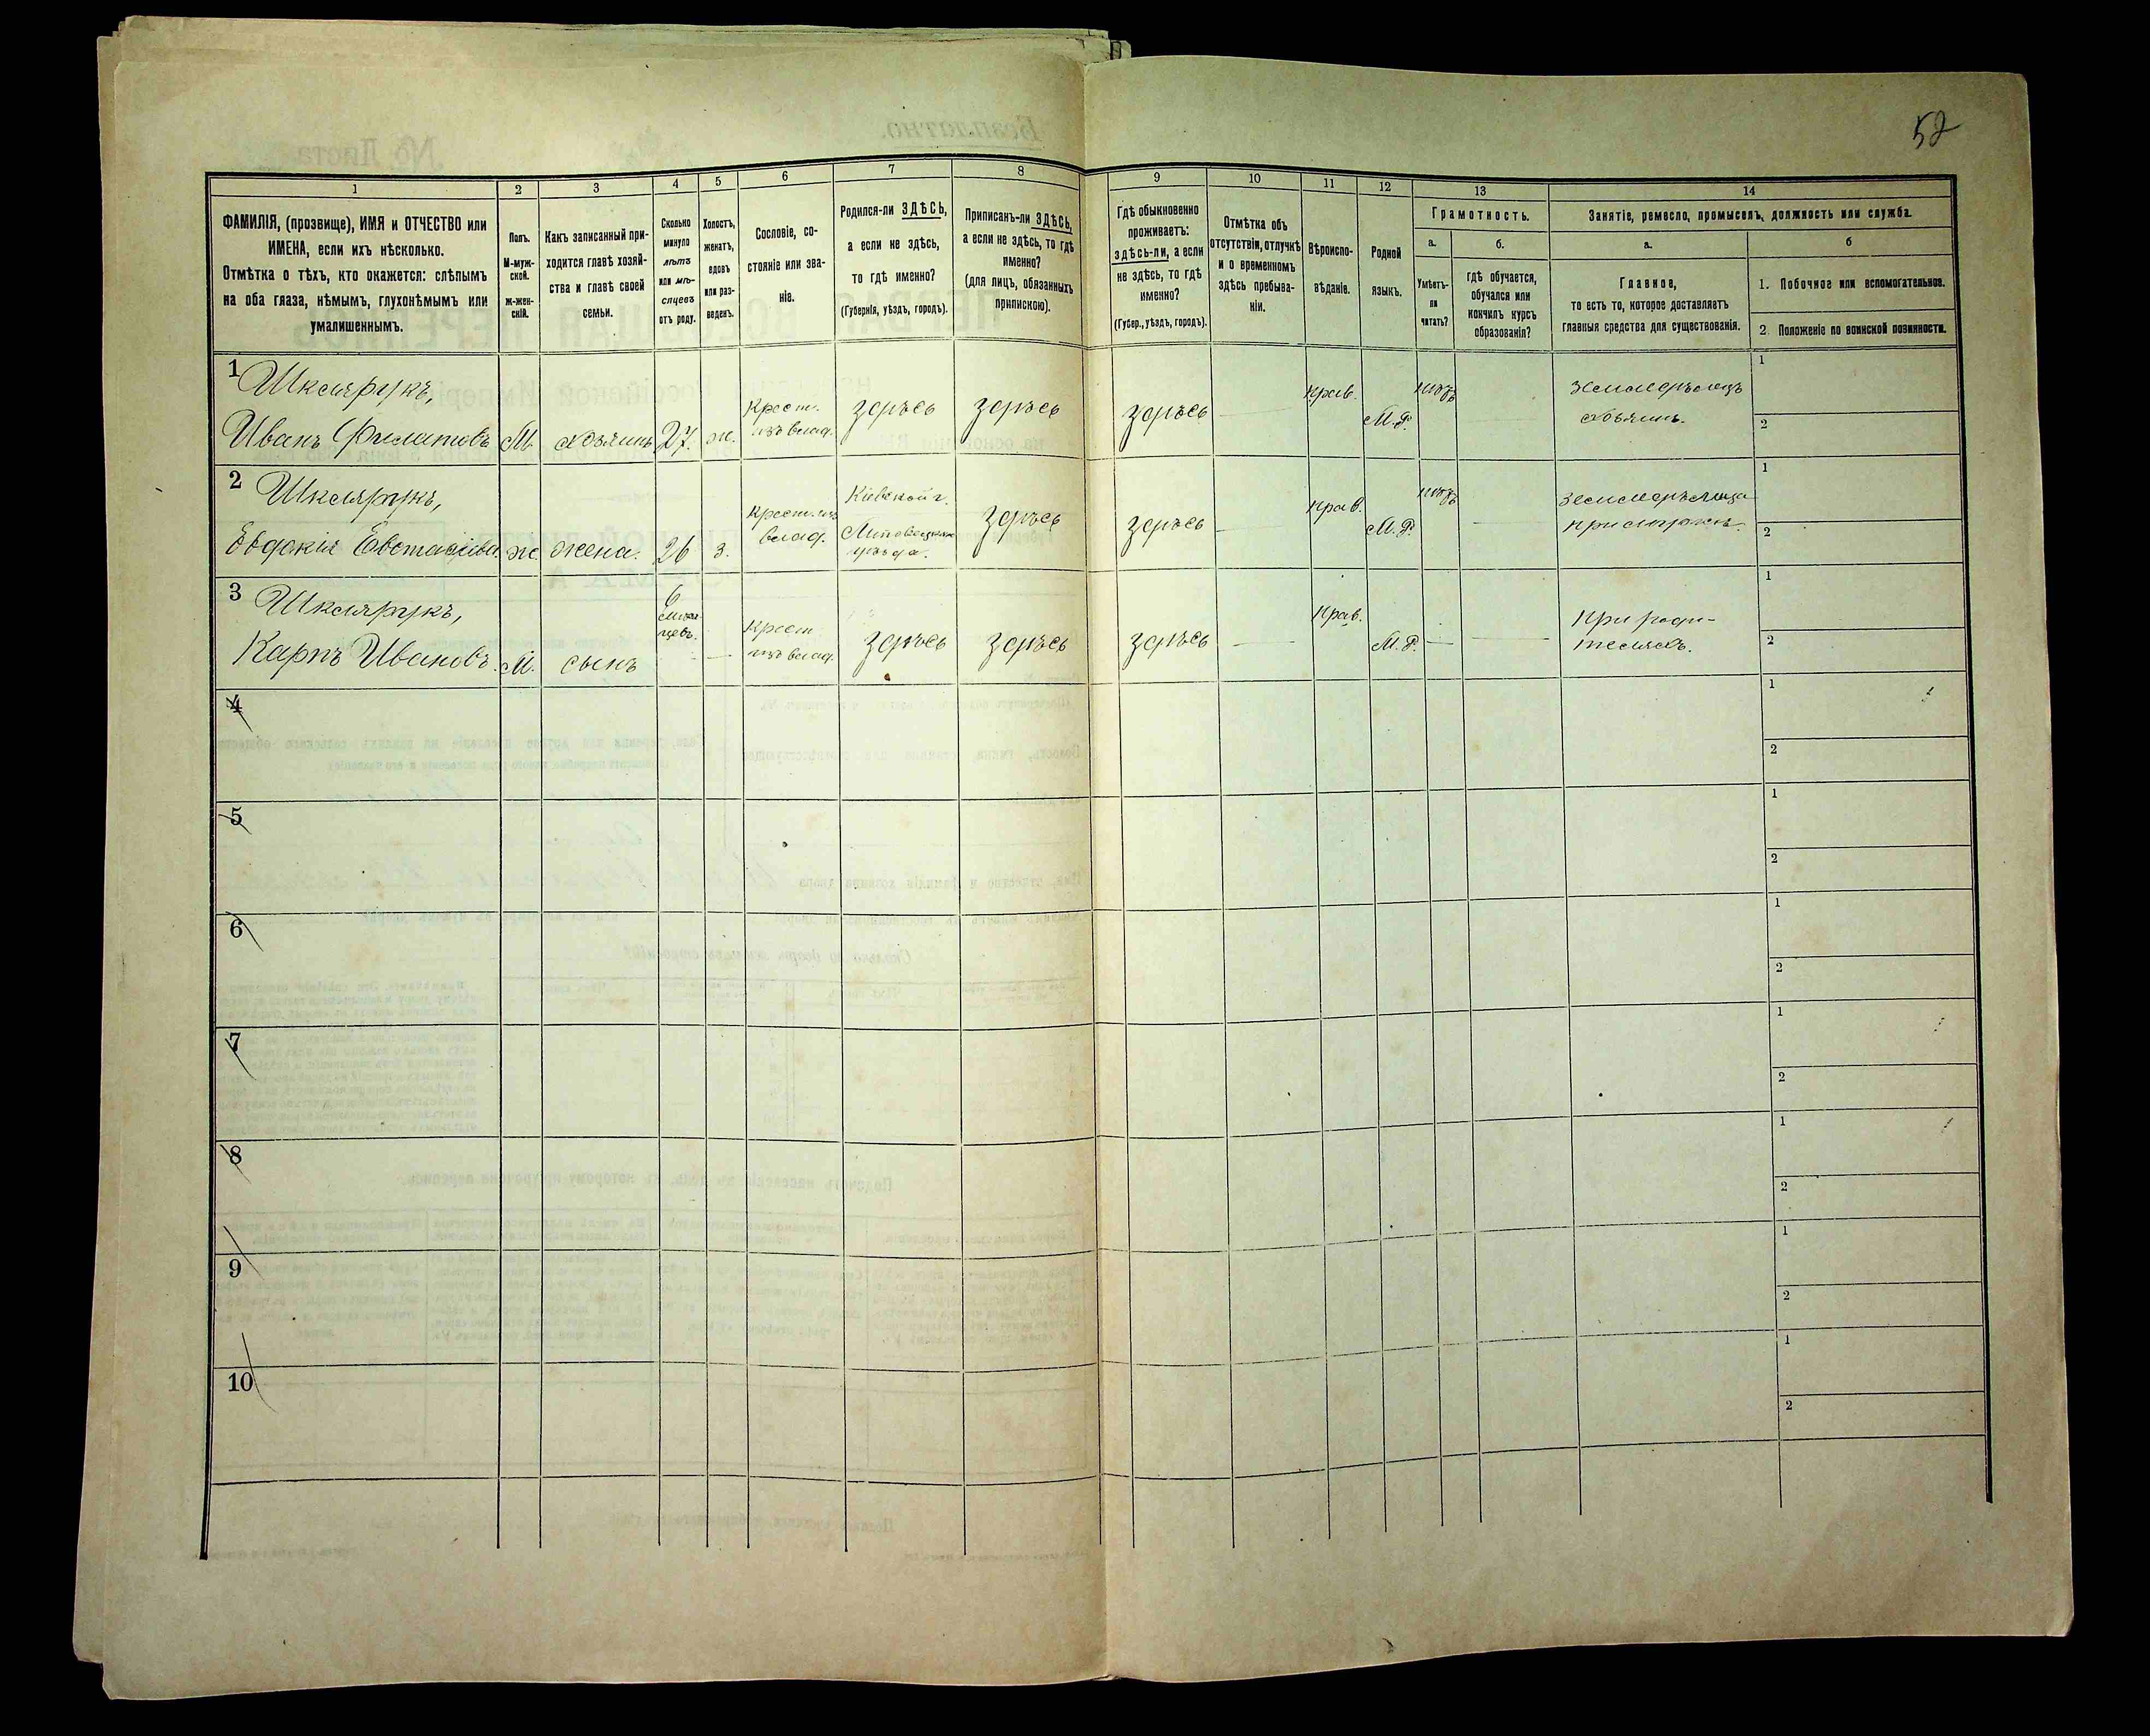 52
1
2
3
4
5
6
7
8
9
10
11
12
13
14
ФАМИЛІЯ, (прозвище), ИМЯ и ОТЧЕСТВО или
ИМЕНА, если ихъ нѣсколько.
Отмѣтка о тѣхъ, кто окажется: слѣпымъ
на оба глаза, нѣмымъ, глухонѣмымъ или
умалишеннымъ.
Полъ.
М-муж-
ской.
ж-жен-
скій.
Какъ записанный при-
ходится главѣ хозяй-
ства и главѣ своей
семьи.
Сколько
минуло
лѣтъ
или мѣ-
сяцевъ
отъ роду.
Холостъ,
женатъ,
вдовъ
или раз-
веденъ.
Сословіе, со-
стояніе или зва-
ніе.
Родился-ли ЗДѢСЬ,
а если не здѣсь,
то гдѣ именно?
(Губернія, уѣздъ, городъ).
Приписанъ-ли ЗДѢСЬ,
а если не здѣсь, то гдѣ
именно?
(для лицъ, обязанныхъ
припискою).
Гдѣ обыкновенно
проживаетъ:
здѣсь-ли, а если
не здѣсь, то гдѣ
именно?
(Губер., уѣздъ, городъ).
Отмѣтка объ
отсутствіи, отлучкѣ
и о временномъ
здѣсь пребыва-
ніи.
Вѣроиспо-
вѣданіе.
Родной
языкъ.
Грамотность.
а.
Умѣетъ-
ли
читать?
б.
гдѣ обучается,
обучался или
кончилъ курсъ
образованія?
Занятіе, ремесло, промыселъ, должность или служба.
а.
Главное,
то есть то, которое доставляетъ
главныя средства для существованія.
б
1. Побочное или вспомогательное.
2 Положеніе по воинской повинности.
1
Шкляругъ,
Иванъ Филатовъ
М.
хозяинъ
27.
ж.
Крест.
изъ влад.
здѣсь
здѣсь
здѣсь
Прав.
М.Р.
нѣтъ
Земледѣлецъ
хозяинъ.
1
2
2
Шкляругъ,
Евдокія
ж.
жена.
26
з.
Крест. изъ
влад.
Кіевской г.
Липовецкаго
уѣзда.
здѣсь
здѣсь
Прав.
М.Р.
нѣтъ
Земледѣлица
при мужѣ.
1
2
3
Шкляругъ,
Карпъ Ивановъ.
М.
сынъ
6
мѣся-
цевъ.
Крест
изъ влад.
здѣсь
здѣсь
здѣсь
Прав.
М.Р.
При роди-
теляхъ.
1
2
4
1
2
5
1
2
6
1
2
7
1
2
8
1
2
9
1
2
10
1
2